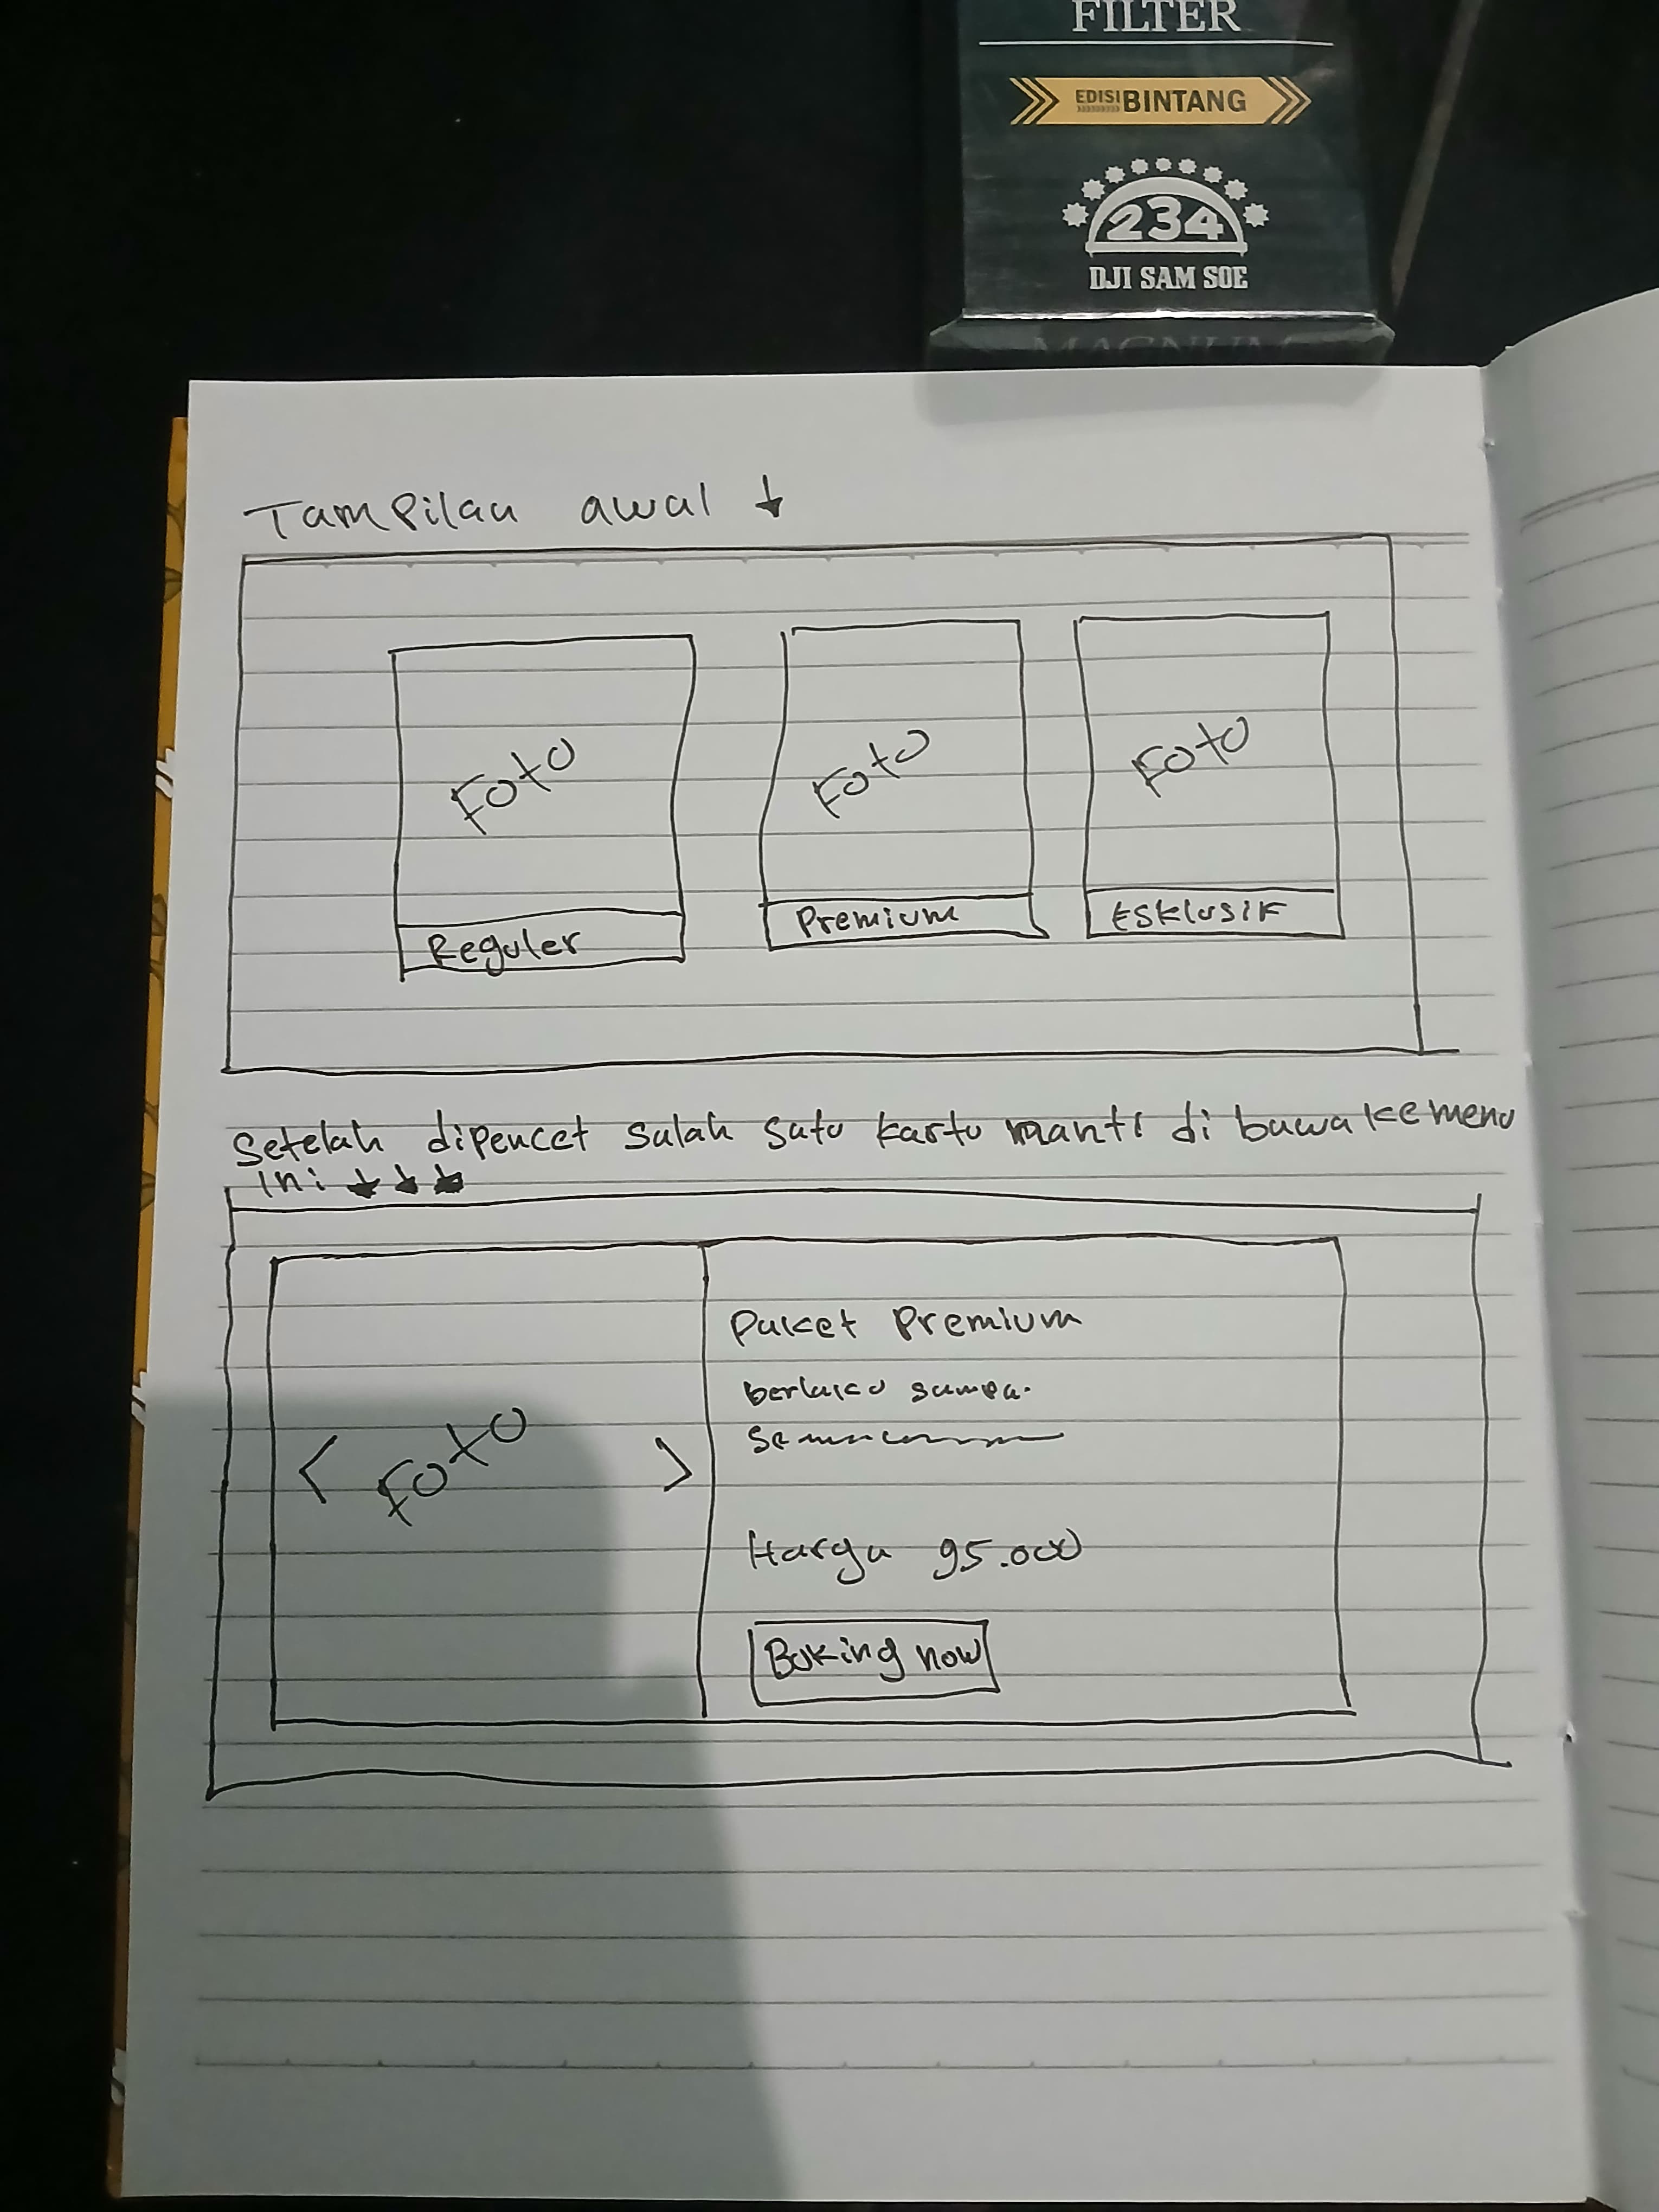 FILTER
EDISI BINTANG
234
DJI SAM SOE
MAGNUM
Tampilan awal ↓
Foto
Foto
Foto
Reguler
Premium
Esklusif
Setelah dipencet salah satu kartu nanti di bawa ke menu
ini ↓ ↓ ↓
Paket Premium
berlaku sampai
< Foto >
Harga 95.000
Boking now